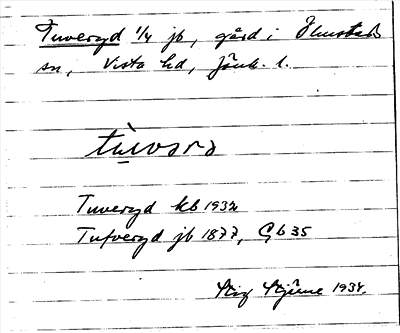 Tuveryd 1/4 jb, gård i Ölmstads
sn, Vista hd, Jönk. l.
tùvərd
Tuveryd kb 1932
Tufveryd jb 1877, Gb 35
Stig Stjärne 1934.